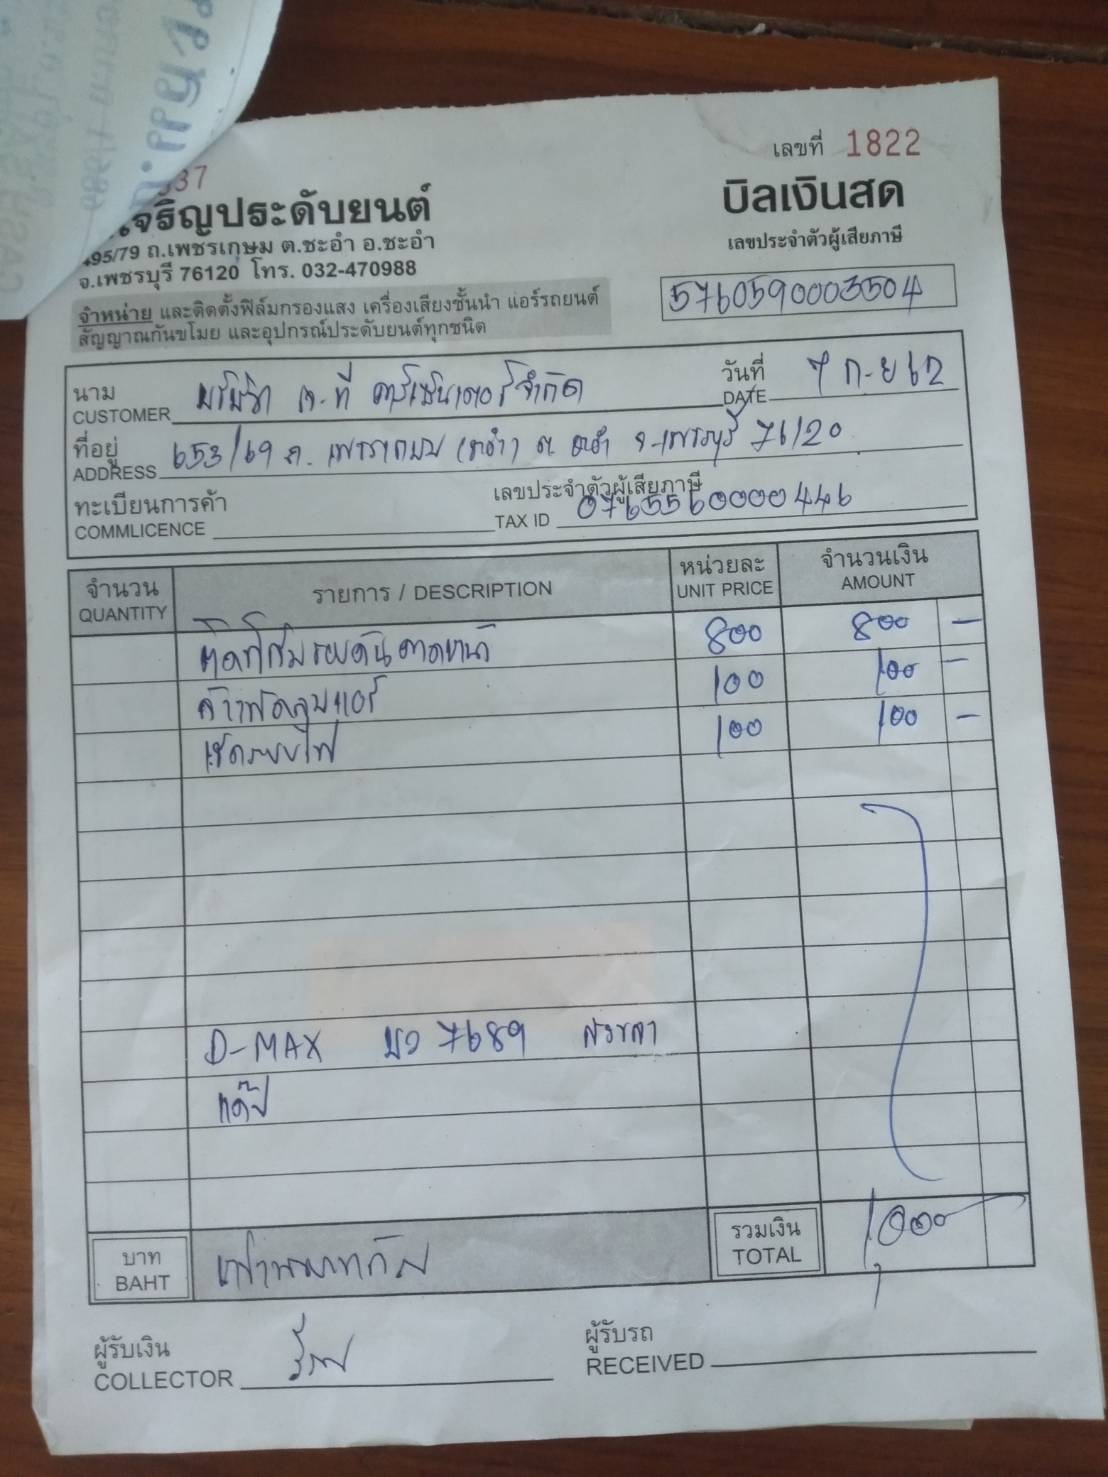 เลขที่ 1822
337
เจริญประดับยนต์
บิลเงินสด
495/79 ถ.เพชรเกษม ต.ชะอำ อ.ชะอำ
เลขประจำตัวผู้เสียภาษี
จ.เพชรบุรี 76120 โทร. 032-470988
5760590003504
จำหน่าย และติดตั้งฟิล์มกรองแสง เครื่องเสียงชั้นนำ แอร์รถยนต์
สัญญาณกันขโมย และอุปกรณ์ประดับยนต์ทุกชนิด
นาม บริษัท เจ.ที คาร์เซ็นเตอร์จำกัด วันที่ 7 ก.ย 62
CUSTOMER DATE
ที่อยู่ 653/69 ถ. เพชรเกษม (ชะอำ) ต. ชะอำ จ.เพชรบุรี 76120
ADDRESS
ทะเบียนการค้า เลขประจำตัวผู้เสียภาษี
COMMLICENCE TAX ID 0765560000446
จำนวน รายการ / DESCRIPTION หน่วยละ จำนวนเงิน
QUANTITY UNIT PRICE AMOUNT
ติดฟิล์มรอบคัน 800 800 -
100 100 -
เช็คระบบไฟ 100 100 -
D-MAX บว 7689 สงขลา
แค๊ป
บาท หนึ่งพันบาทถ้วน รวมเงิน 1,000
BAHT TOTAL
ผู้รับเงิน ผู้รับรถ
COLLECTOR RECEIVED